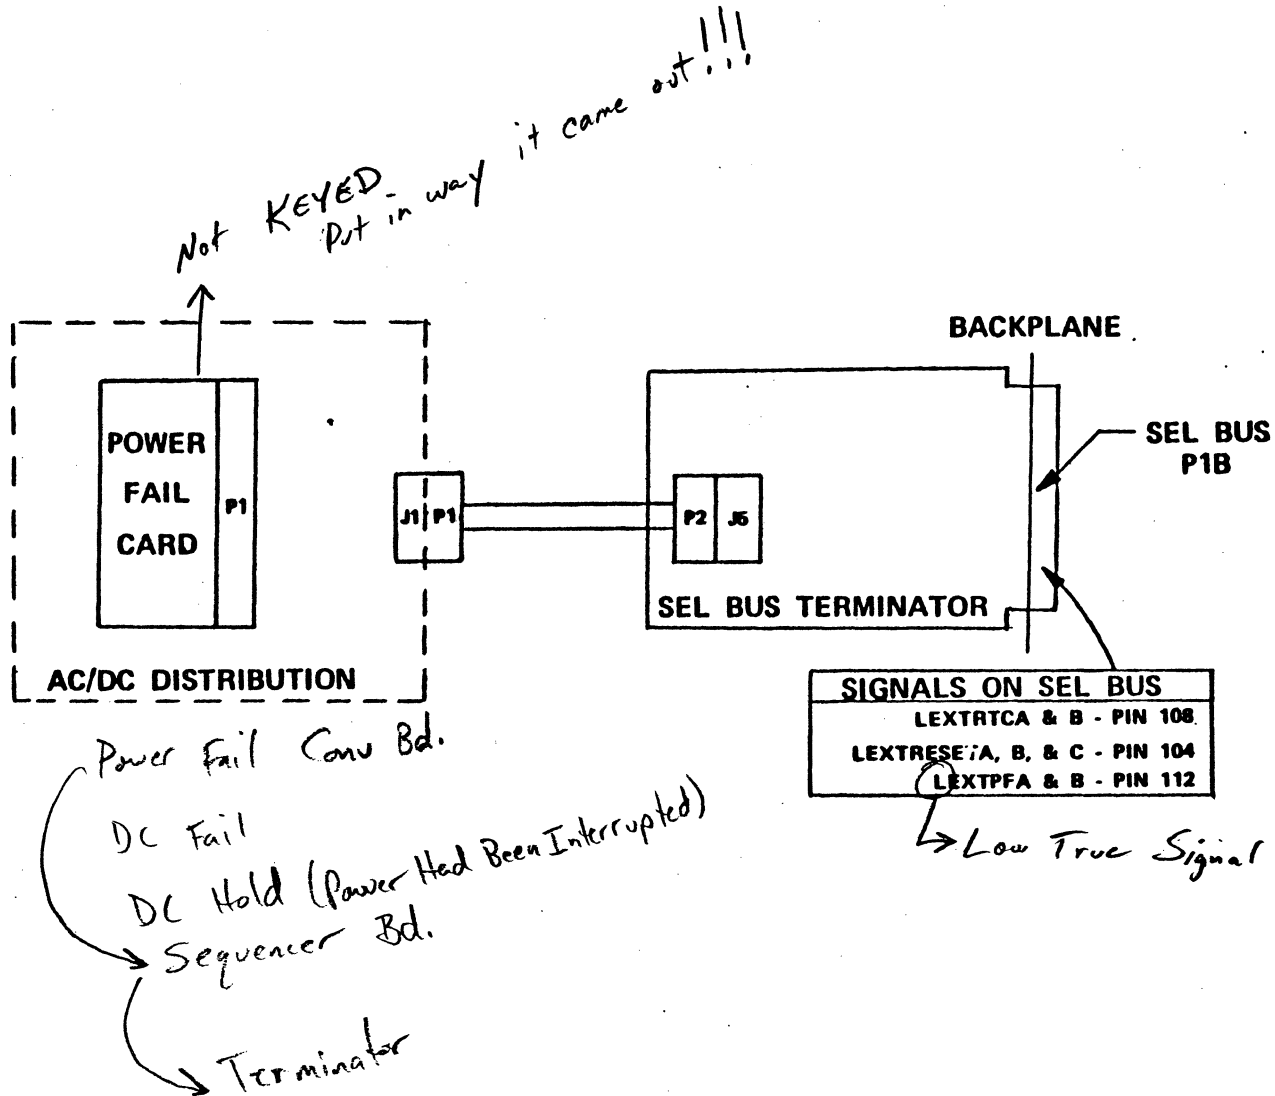 Not KEYED
Put in way it came out!!!
BACKPLANE
SEL BUS
P1B
POWER
FAIL
CARD
P1
J1 P1
P2 J5
SEL BUS TERMINATOR
AC/DC DISTRIBUTION
SIGNALS ON SEL BUS
LEXTRTCA & B - PIN 108
LEXTRESETA, B, & C - PIN 104
LEXTPFA & B - PIN 112
Low True Signal
Power Fail Conv Bd.
DC Fail
DC Hold (Power Had Been Interrupted)
Sequencer Bd.
Terminator